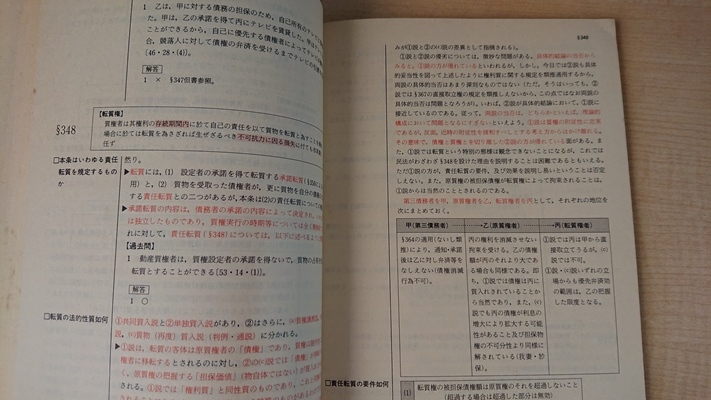 1 乙は、甲に対する債務の担保のため、自己所有のテレビ
た。甲は、乙の承諾を得て丙にテレビを賃貸した。
ことができるから、自己に優先する債権者によって
合、競落人に対して債権の弁済を受けるまでテレビ
(46・28・(4))。
解答
1 × §347但書参照。
§348
【転質権】
質権者は其権利の存続期間内に於て自己の責任を以て質物を転質と為すことを
場合に於ては転質を為さざれば生ぜざるべき不可抗力に因る損失に付ても亦其
任ず
□本条はいわゆる責任
転質を規定するもの
か
然り。
▶転質には、(1) 設定者の承諾を得て転質する承諾転質
用)と、(2) 質物を受取った債権者が、更に質物を自分の債務
する責任転質との二つがあるが、本条は(2)の責任転質について
▶承諾転質の内容は、債務者の承諾の内容によって決定され、
は独立したものであり、質権実行の時期等については全く
れに対して、責任転質(§348)については、以下に述べる
【過去問】
1 動産質権者は、質権設定者の承諾を得ないで、質物の占有を
転質とすることができる(53・14・(1))。
解答
1 ○
□転質の法的性質如何
①共同質入説と②単独質入説があり、②はさらに、
説、(ロ)質物(再度)質入説(判例・通説)に分かれる。
▶①説は、転質の客体は原質権者の『債権』であり、質権が
権者に移転するとされるのに対し、②の(ロ)説では『債権』
く、原質権の把握する『担保価値』(物自体ではない)
される。①説で『権利質』と同性質のものであり、
§348
みが①説と②の(ロ)説の差異として指摘される。
①説と②説の優劣については、微妙な問題がある。具体的結論の当否から
みると、①説の方が優れているといわれるが、しかし、今日では②説も具体
的妥当性を図って上述したように権利質に関する規定を類推適用するから、
両説の具体的当否はあまり深刻なものではない(ただ、そうはいっても、②
説では§367の直接取立権の規定を類推しえないから、この点ではなお両説の
具体的当否は問題となろうが)。いわば、②説が具体的結論において、①説に
接近しているのである。従って、両説の当否は、どちらかといえば、理論的
構成において問題となるにすぎないといえよう。①説は質権の附従性に忠実
であるが、反面、近時の附従性を緩和すべしとする考え方からはかけ離れる。
その意味で、債権と質権とを切り離した②説の方が優れている面がある。ま
た、①説では転質という特別の態様は観念できないことになるが、これでは
民法がわざわざ§348を設けた理由を説明することは困難であるともいえる。
ただ①説の方が、責任転質の要件、及び効果を説明し易いということは否定
しえない。また、原質権の被担保債権が転質権によって拘束されることは、
①説からは当然のこととされるのである。
甲を第三債務者、原質権者を乙、転質権者を丙として、それぞれの地位を
次にまとめておく。
甲(第三債務者)
→乙(原質権者)
→丙(転質権者)
§364の適用(ないし類
推)により、通知・承諾
後は乙に対し弁済等を
なしえない(債権消滅
行為不可)。
丙の権利を消滅させない
拘束を受ける。乙の債権
額が丙のそれより大であ
る場合も同様である。即
ち、①説では債権は丙に
質入れされていることか
ら当然であり、また、(ロ)
説でも丙の債権が利息の
増大により拡大する可能
性があること及び担保物
権の不可分性より同様に
解されている(我妻・於
保)。
①説では丙は甲から直
接取立うるが、(ロ)説で
は不可。
①説・(ロ)説いずれの立
場からも優先弁済物
の範囲は、乙の把握
した限度となる。
□責任転質の要件如何
(1) 転質権の被担保債権額は原質権のそれを超過しないこと
(超過する場合は超過した部分は無効)